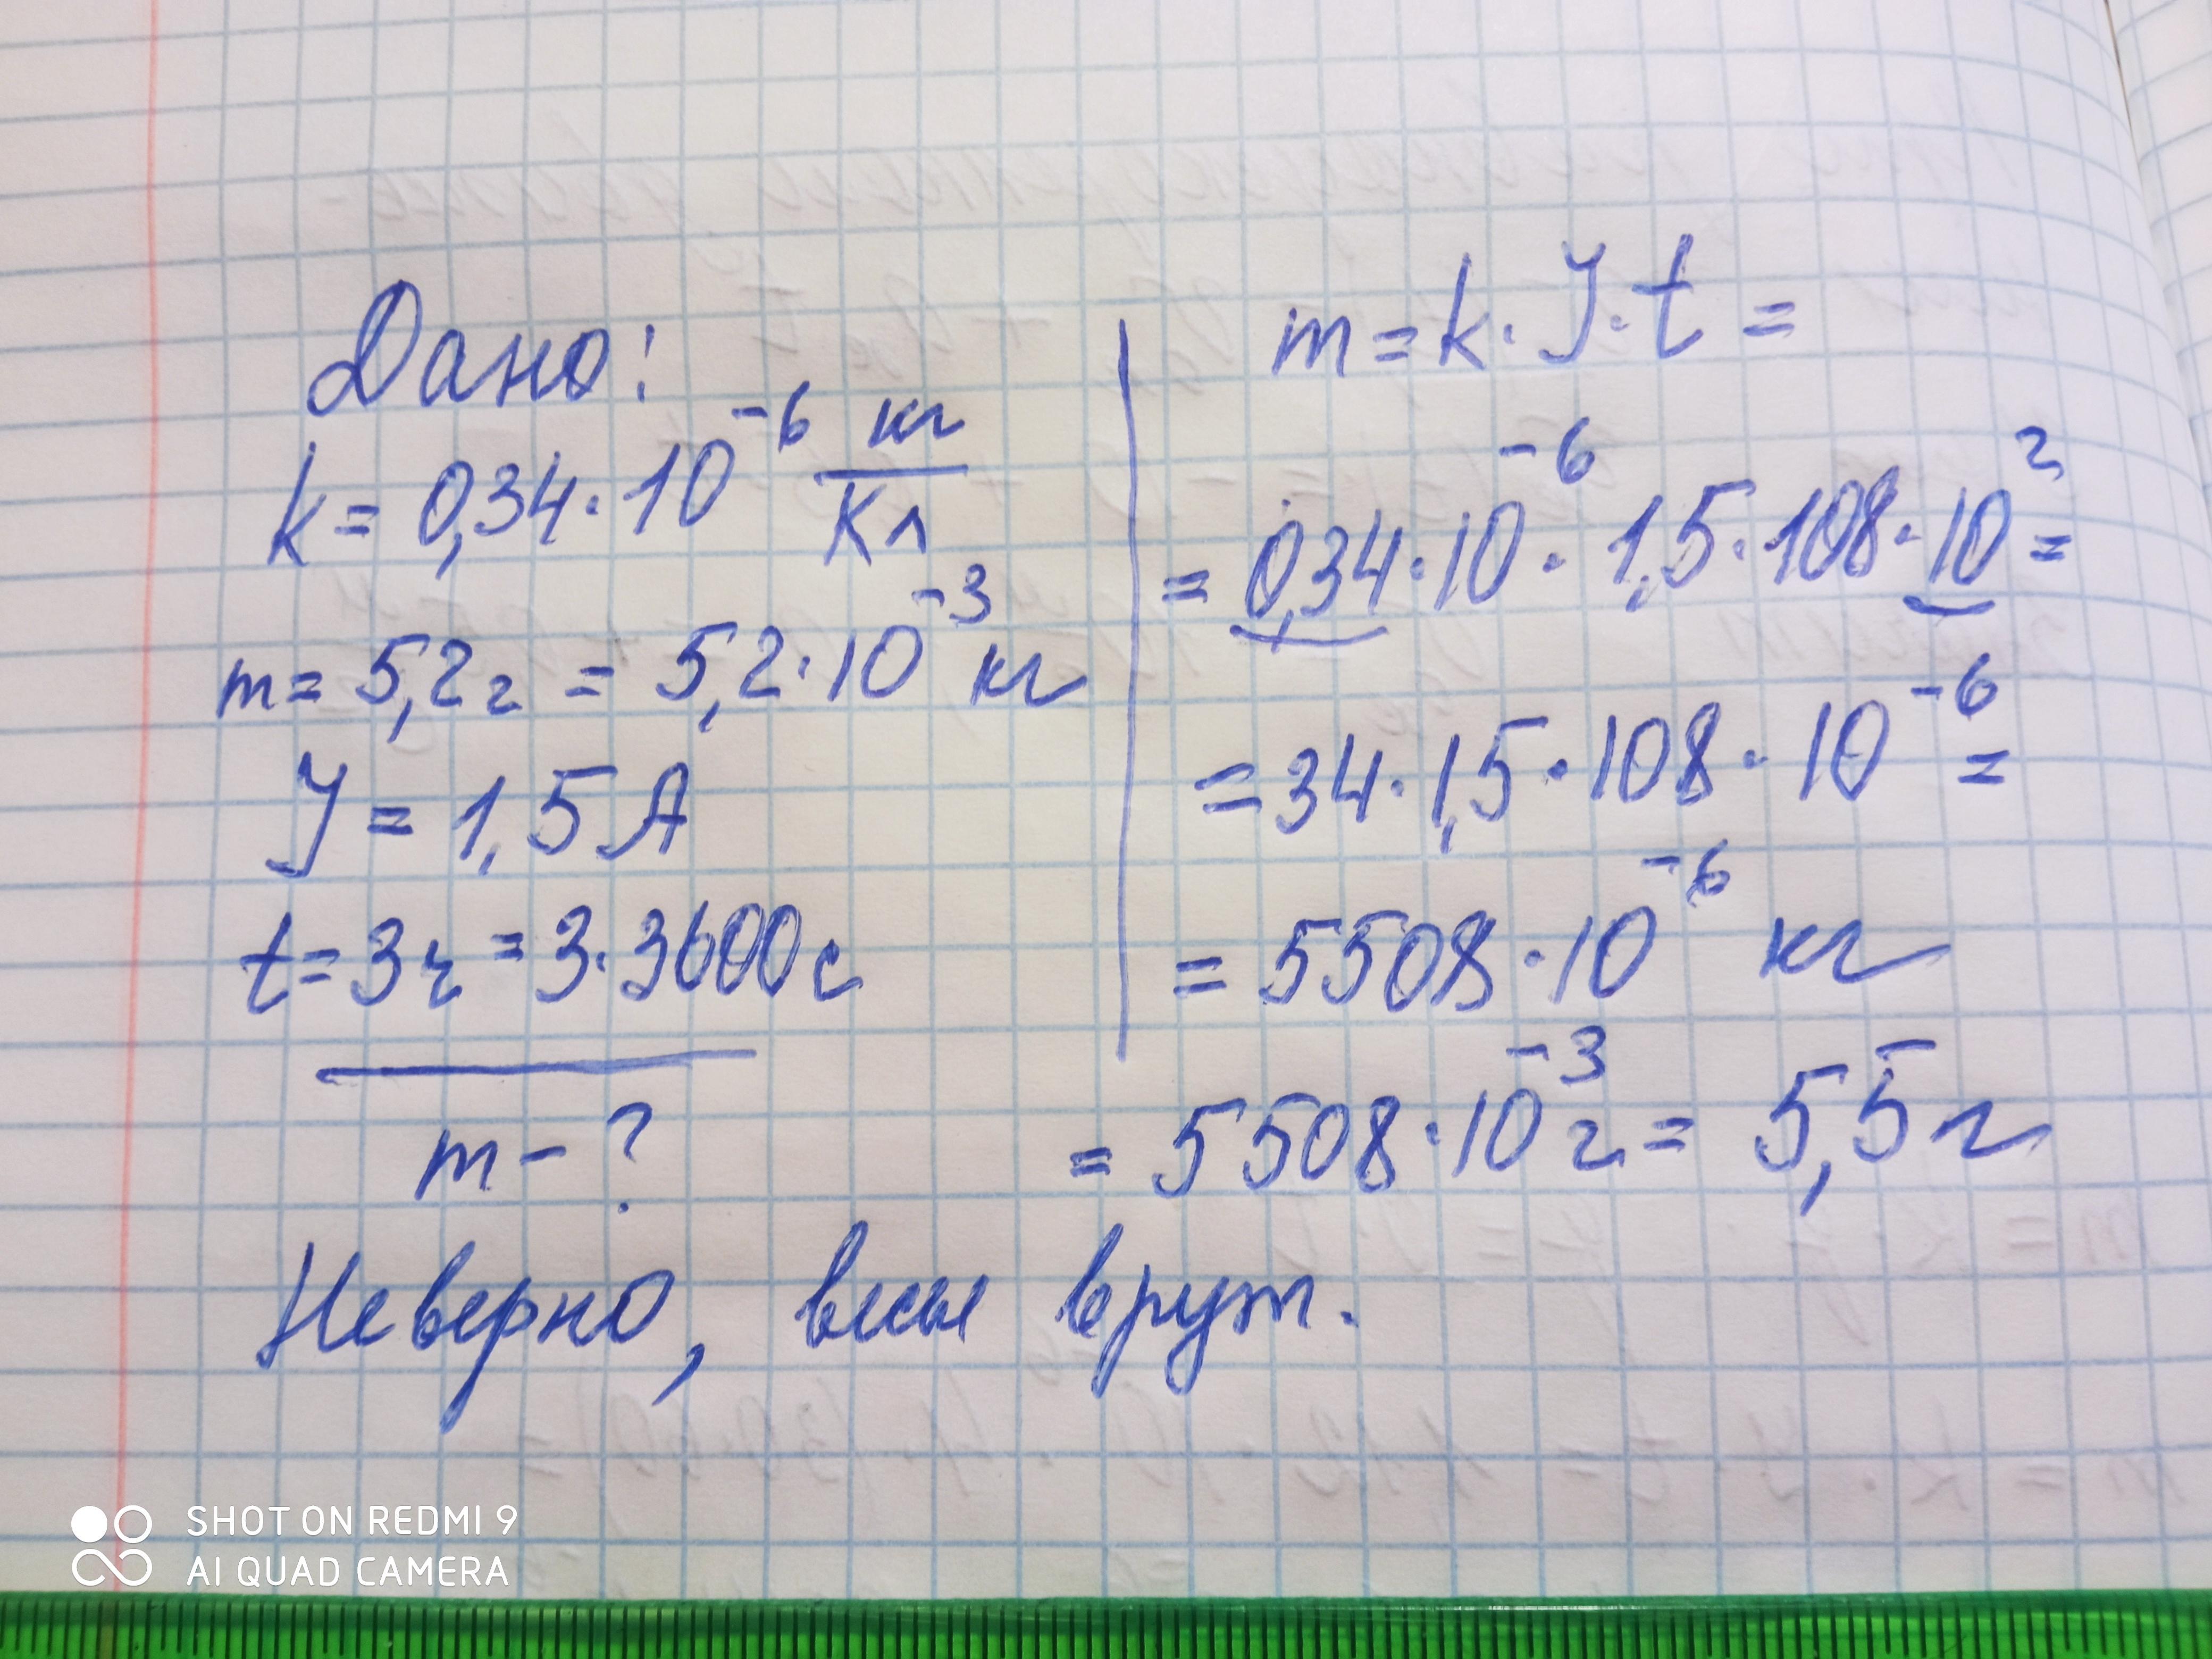 Дано:
k = 0,34·10⁻⁶ кг/Кл
m = 5,2 г = 5,2·10⁻³ кг
J = 1,5 А
t = 3ч = 3·3600 с
m - ?
m = k·J·t =
= 0,34·10⁻⁶·1,5·108·10² =
= 34·1,5·108·10⁻⁶ =
= 5508·10⁻⁶ кг
= 5508·10⁻³ г = 5,5 г
Неверно, весы врут.
SHOT ON REDMI 9
AI QUAD CAMERA